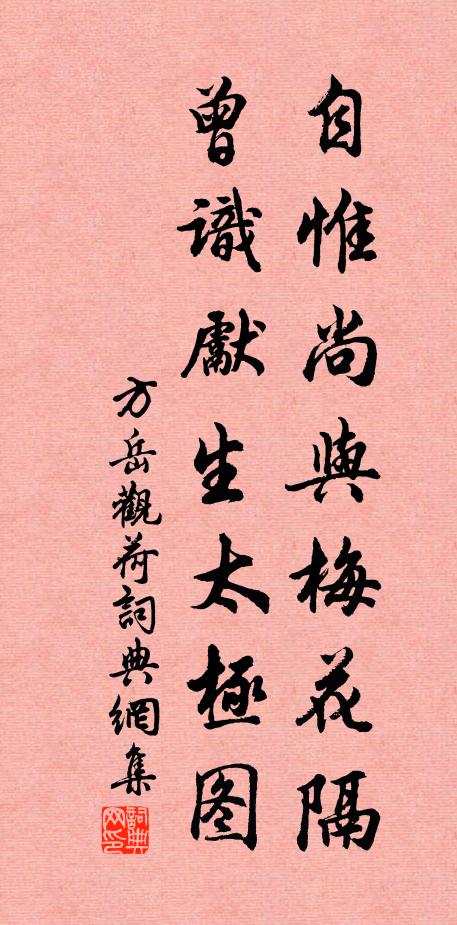 自惟尚與梅花隔
曾識獻生太極图
方岳觀荷詞典網集
詞典网印